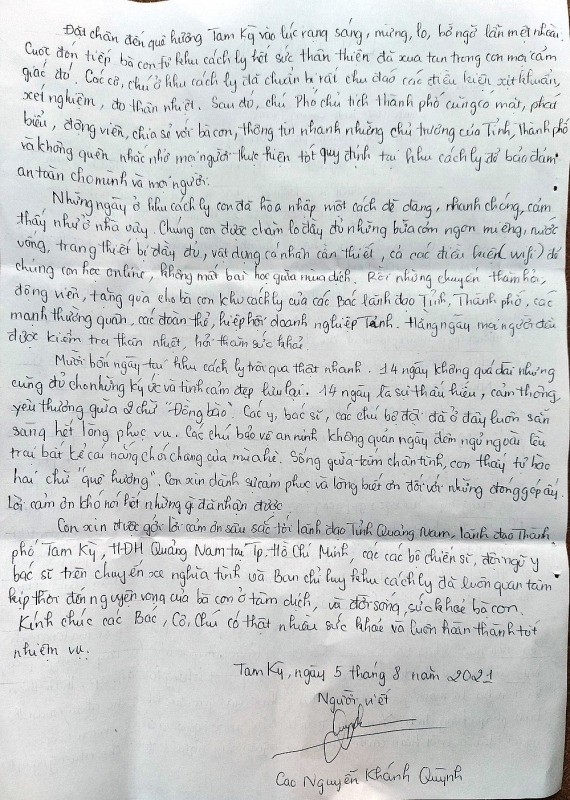 Đặt chân đến quê hương Tam Kỳ vào lúc rạng sáng, mừng, lo, bỡ ngỡ lẫn mệt nhoài.
Cuộc đón tiếp bà con từ khu cách ly hết sức thân thiện đã xua tan trong con mọi cảm
giác đó. Các cô, chú ở khu cách ly đã chuẩn bị rất chu đáo các điều kiện xịt khuẩn,
xét nghiệm, đo thân nhiệt. Sau đó, chú Phó chủ tịch thành phố cũng có mặt, phát
biểu, động viên, chia sẻ với bà con, thông tin nhanh những chủ trương của Tỉnh, Thành phố
và không quên nhắc nhở mọi người thực hiện tốt quy định tại khu cách ly để bảo đảm
an toàn cho mình và mọi người.
Những ngày ở khu cách ly con đã hòa nhập một cách dễ dàng, nhanh chóng, cảm
thấy như ở nhà vậy. Chúng con được chăm lo đầy đủ những bữa cơm ngon miệng, nước
uống, trang thiết bị đầy đủ, vật dụng cá nhân cần thiết, cả các điều kiện wifi) để
chúng con học online, không mất bài học giữa mùa dịch. Rồi những chuyến thăm hỏi,
động viên, tặng quà cho bà con khu cách ly của các Bác lãnh đạo Tỉnh, Thành phố, các
mạnh thường quân, các đoàn thể, hiệp hội doanh nghiệp Tỉnh. Hằng ngày mọi người đều
được kiểm tra thân nhiệt, hỏi thăm sức khoẻ.
Mười bốn ngày tại khu cách ly trôi qua thật nhanh. 14 ngày không quá dài nhưng
cũng đủ cho những ký ức và tình cảm đẹp lưu lại. 14 ngày là sự thấu hiểu, cảm thông,
yêu thương giữa 2 chữ "Đồng bào". Các y, bác sĩ, các chú bộ đội đã ở đây luôn sẵn
sàng hết lòng phục vụ. Các chú bảo vệ an ninh không quản ngày đêm ngủ ngoài lều
trại bất kể cái nắng chói chang của mùa hè. Sống giữa tấm chân tình, con thấy tự hào
hai chữ "quê hương". Con xin dành sự cảm phục và lòng biết ơn đối với những đóng góp ấy.
Lời cảm ơn khó nói hết những gì đã nhận được.
Con xin được gởi lời cảm ơn sâu sắc tới lãnh đạo Tỉnh Quảng Nam, lãnh đạo Thành
phố Tam Kỳ, HĐH Quảng Nam tại Tp. Hồ Chí Minh, các các bộ chiến sĩ, đội ngũ y
bác sĩ trên chuyến xe nghĩa tình và Ban chỉ huy khu cách ly đã luôn quan tâm
kịp thời đến nguyện vọng của bà con ở tâm dịch, và đời sống, sức khoẻ bà con.
Kính chúc các Bác, Cô, Chú có thật nhiều sức khoẻ và luôn hoàn thành tốt
nhiệm vụ.
Tam Kỳ, ngày 5 tháng 8 năm 2021
Người viết
Quỳnh
Cao Nguyễn Khánh Quỳnh